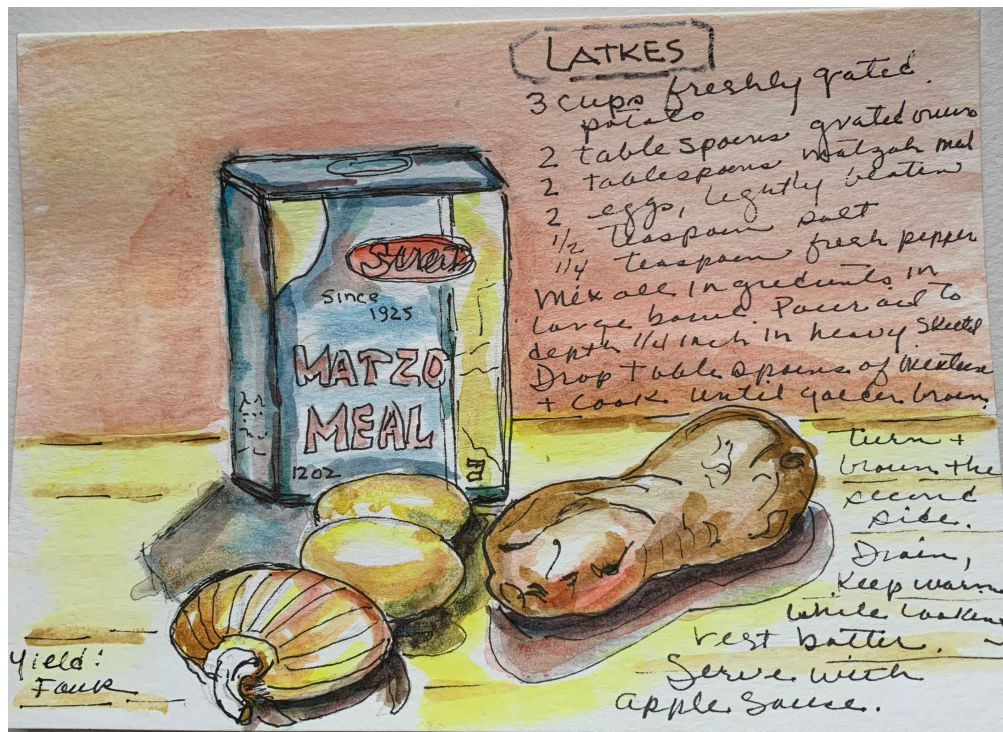 LATKES
3 cups freshly grated
potato
2 tablespoons grated onion
2 tablespoons matzah meal
2 eggs, lightly beaten
1/2 teaspoon salt
1/4 teaspoon fresh pepper
Mix all ingredients in
large bowl. Pour oil to
depth 1/4 inch in heavy skillet
Drop tablespoons of mixture
+ cook until golden brown.
turn +
brown the
second
side.
Drain,
Keep warm
while cooking
rest batter.
Serve with
apple sause.
Streit's
Since
1925
MATZO
MEAL
12OZ
Yield:
Four